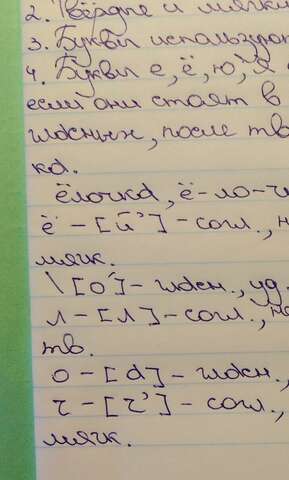 2. Твёрдые и мягки
3. Буквы используют
4. Буквы е, ё, ю, я
если они стоят в
гласных, после тв
ка.
ёлочка, ё-ло-ч
ё - [й'] - согл., н
мягк.
\ [о́] - гласн., уд.
л - [л] - согл., не
тв.
о - [а] - гласн.,
ч - [ч'] - согл.,
мягк.